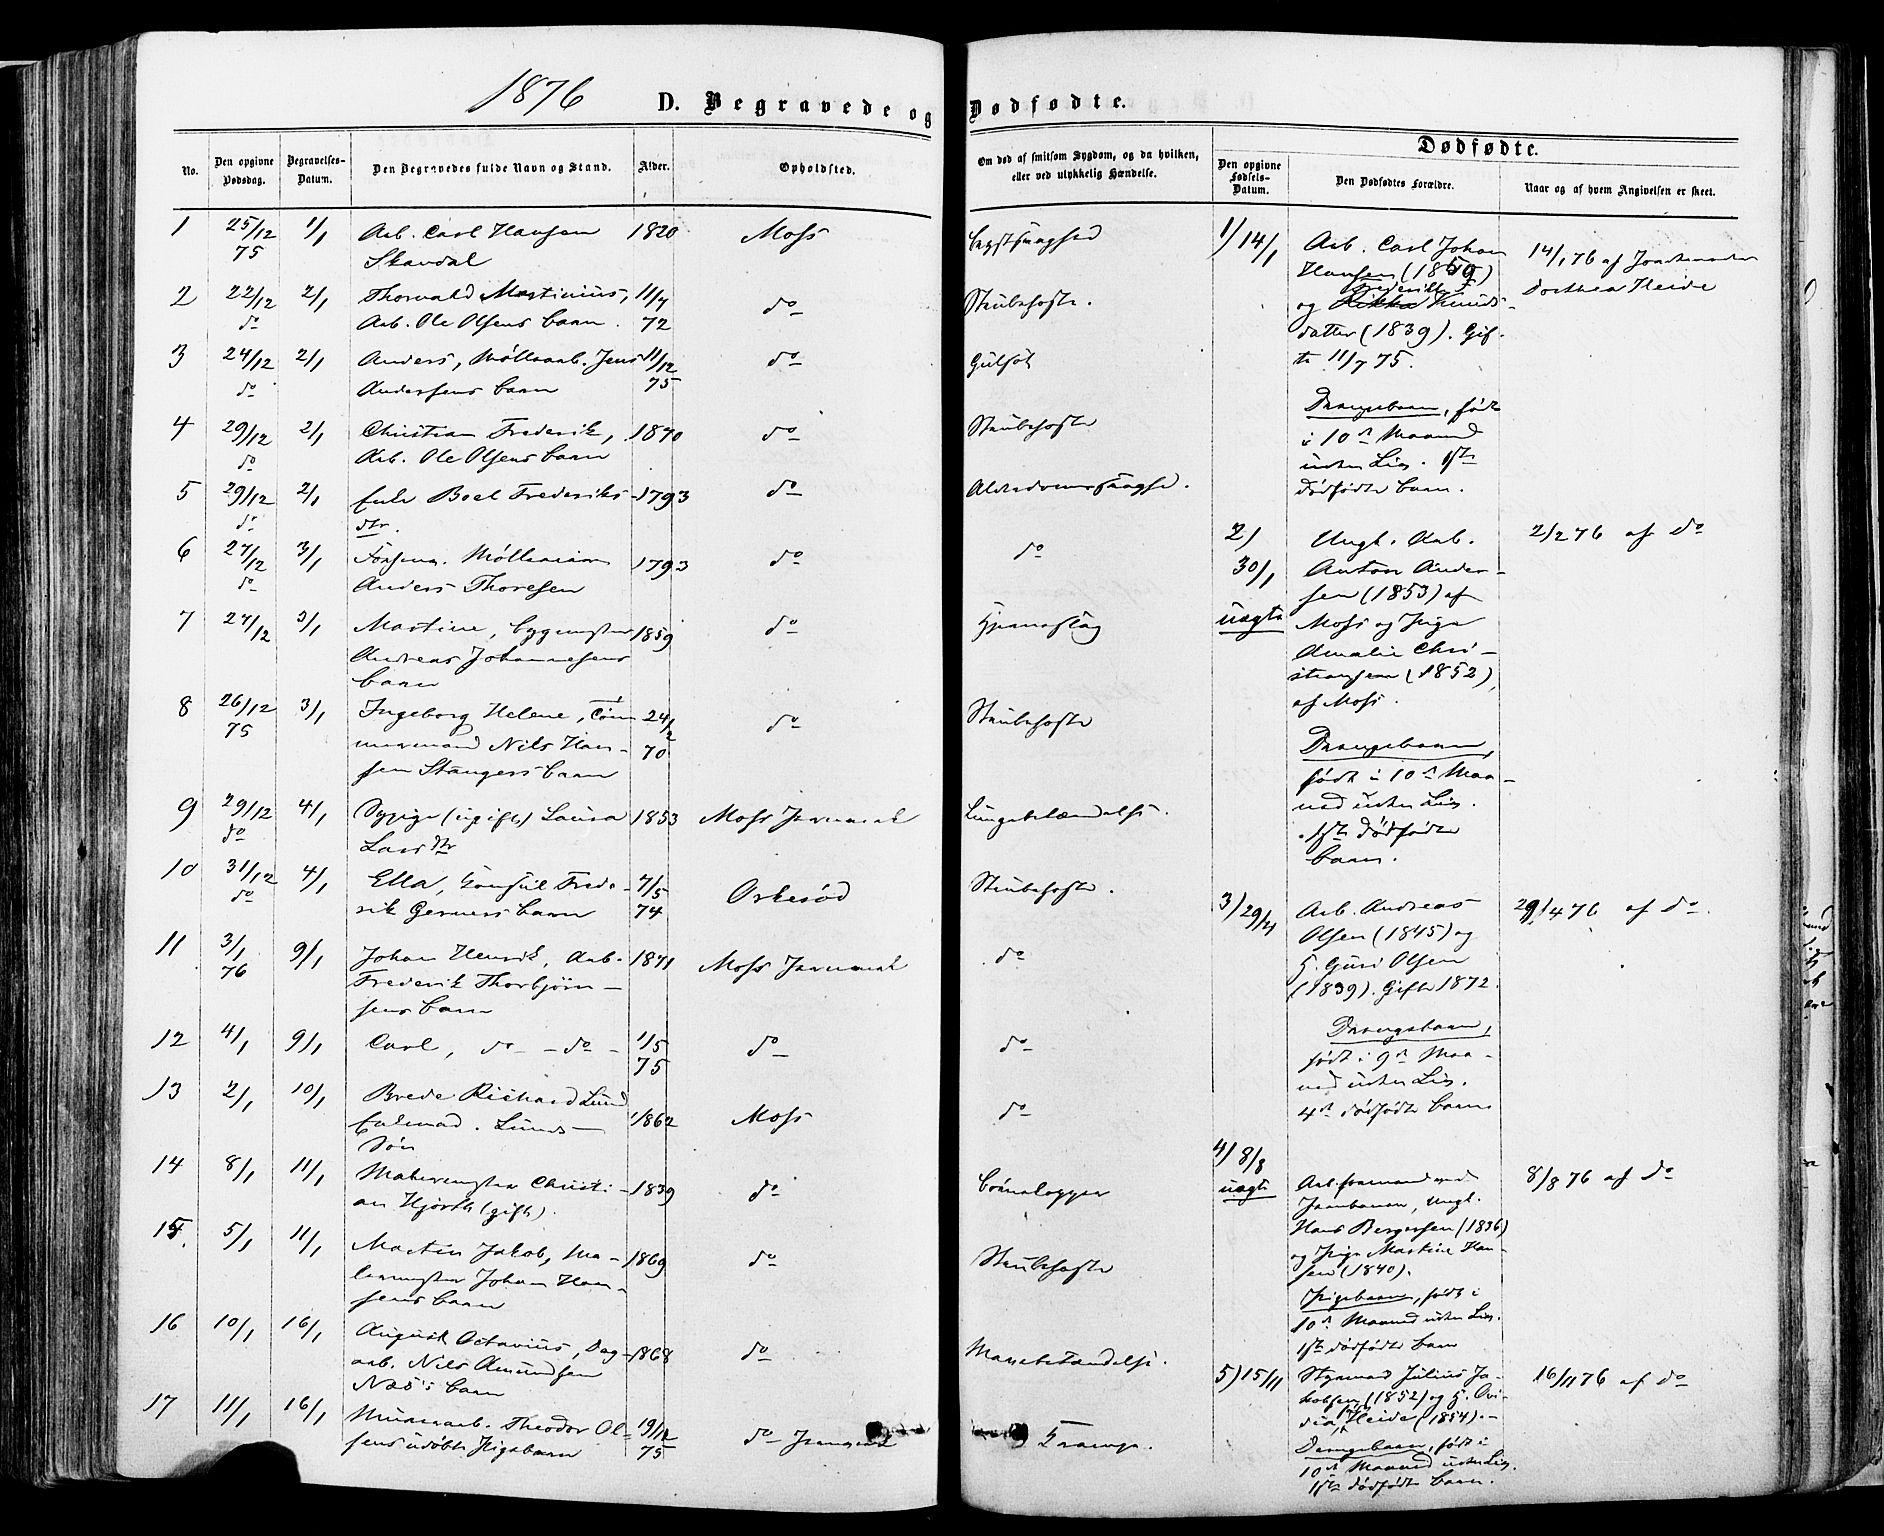 1876
D. Begravede og Dødfødte.
Dødfødte.
No.
Den opgivne Dødsdag.
Begravelses-Datum.
Den Begravedes fulde Navn og Stand.
Alder.
Opholdsted.
Om død af smitsom Sygdom, og da hvilken, eller ved ulykkelig Hændelse.
Den opgivne Fødsels-Datum.
Den Dødfødtes Forældre.
Naar og af hvem Angivelsen er skeet.
1 25/12 75 1/1 Arb. Carl Hansen 1820 Moss Brystsvaghed
Skaudal
2 22/12 do 2/1 Thorvald Martinius, 11/7 72 do Strubehoste.
Arb. Ole Olsens barn.
3 24/12 do 2/1 Anders, Møllearb. Jens 11/12 75 do Gulsot
Andersens barn
4 29/12 do 2/1 Christian Frederik, 1870 do Strubehoste
Arb. Ole Olsens barn
5 29/12 do 2/1 Enke Boel Frederiks- 1793 do Alderdomssvaghed.
dtr.
6 27/12 do 3/1 1793 do do
Anders Thoresen
7 27/12 3/1 Martine, bygmester 1859 do Hjerneslag
Andreas Johannesens
barn
8 26/12 75 3/1 Ingeborg Helene, Töm- 24/2 70 do Strubehoste
mermand Nils Han-
sen Stangers barn
9 29/12 do 4/1 Sypige (ugift) Laura 1853 Moss Jernværk Lungebetændelse.
Lars dtr
10 31/12 do 4/1 Ella, Konsul Frede- 7/5 74 Orkerød Strubehoste.
rik Gerners barn
11 3/1 76 9/1 Johan Henrik, Arb. 1871 Moss Jernværk do
Frederik Thorbjörn-
sens barn
12 4/1 9/1 Carl, do - do - 1/5 75 do do
13 2/1 10/1 Brede Richard Lund 1862 Moss do
Lunds
Søn
14 8/1 11/1 Malermester Christi- 1839 do
an Hjorth (gift).
15. 5/1 11/1 Martin Jakob, Ma- 1869 do Strubehoste
lermester Johan Han-
sens barn
16 10/1 16/1 August Octavius, Dag- 1868 do Mavebetændelse.
arb. Nils Amundsen
Næs's barn
17 11/1 16/1 Theodor Ol- 19/12 75 do Jernværk Krampe.
sens udöbte Pigebarn
1/ 14/1 Arb. Carl Johan
Hansen (1850)
og Frederikke F. Knuds-
datter (1839). Gif-
te 11/7 75.
Drengebarn, född
i 10de Maaned
uden Liv. 1ste
dödfödte barn.
14/1 76 af
Dorthea Heide
2/ 30/1 uægte
Ungk. Arb.
Anton Ander-
sen (1853) af
Moss og Pige
Amalie Chri-
stiansen (1852),
af Moss.
Drengebarn,
födt i 10de Maa-
ned uden Liv.
1ste dödfödte
barn.
2/2 76 af do
3/ 29/4 Arb. Andreas
Olsen (1845) og
H. Guri Olsen
(1839). Gifte 1872.
Drengebarn,
födt i 9de Maa-
ned uden Liv.
4de dödfödte barn
29/4 76 af do.
4/ 8/8 uægte
Arb.formand ved
Jernbanen, Ungk.
Hans Bergersen (1836)
og Pige Martine Han-
sen (1840).
Pigebarn, födt i
10de Maaned uden Liv.
1ste dödfödte barn
8/8 76 af do
5) 15/11 Styrmand Julius Ja-
kobsen (1852) og H. Ovi-
dia Heide (1854).
Drengebarn, födt i
10de Maaned uden Liv.
1ste dödfödte barn.
16/11 76 af do